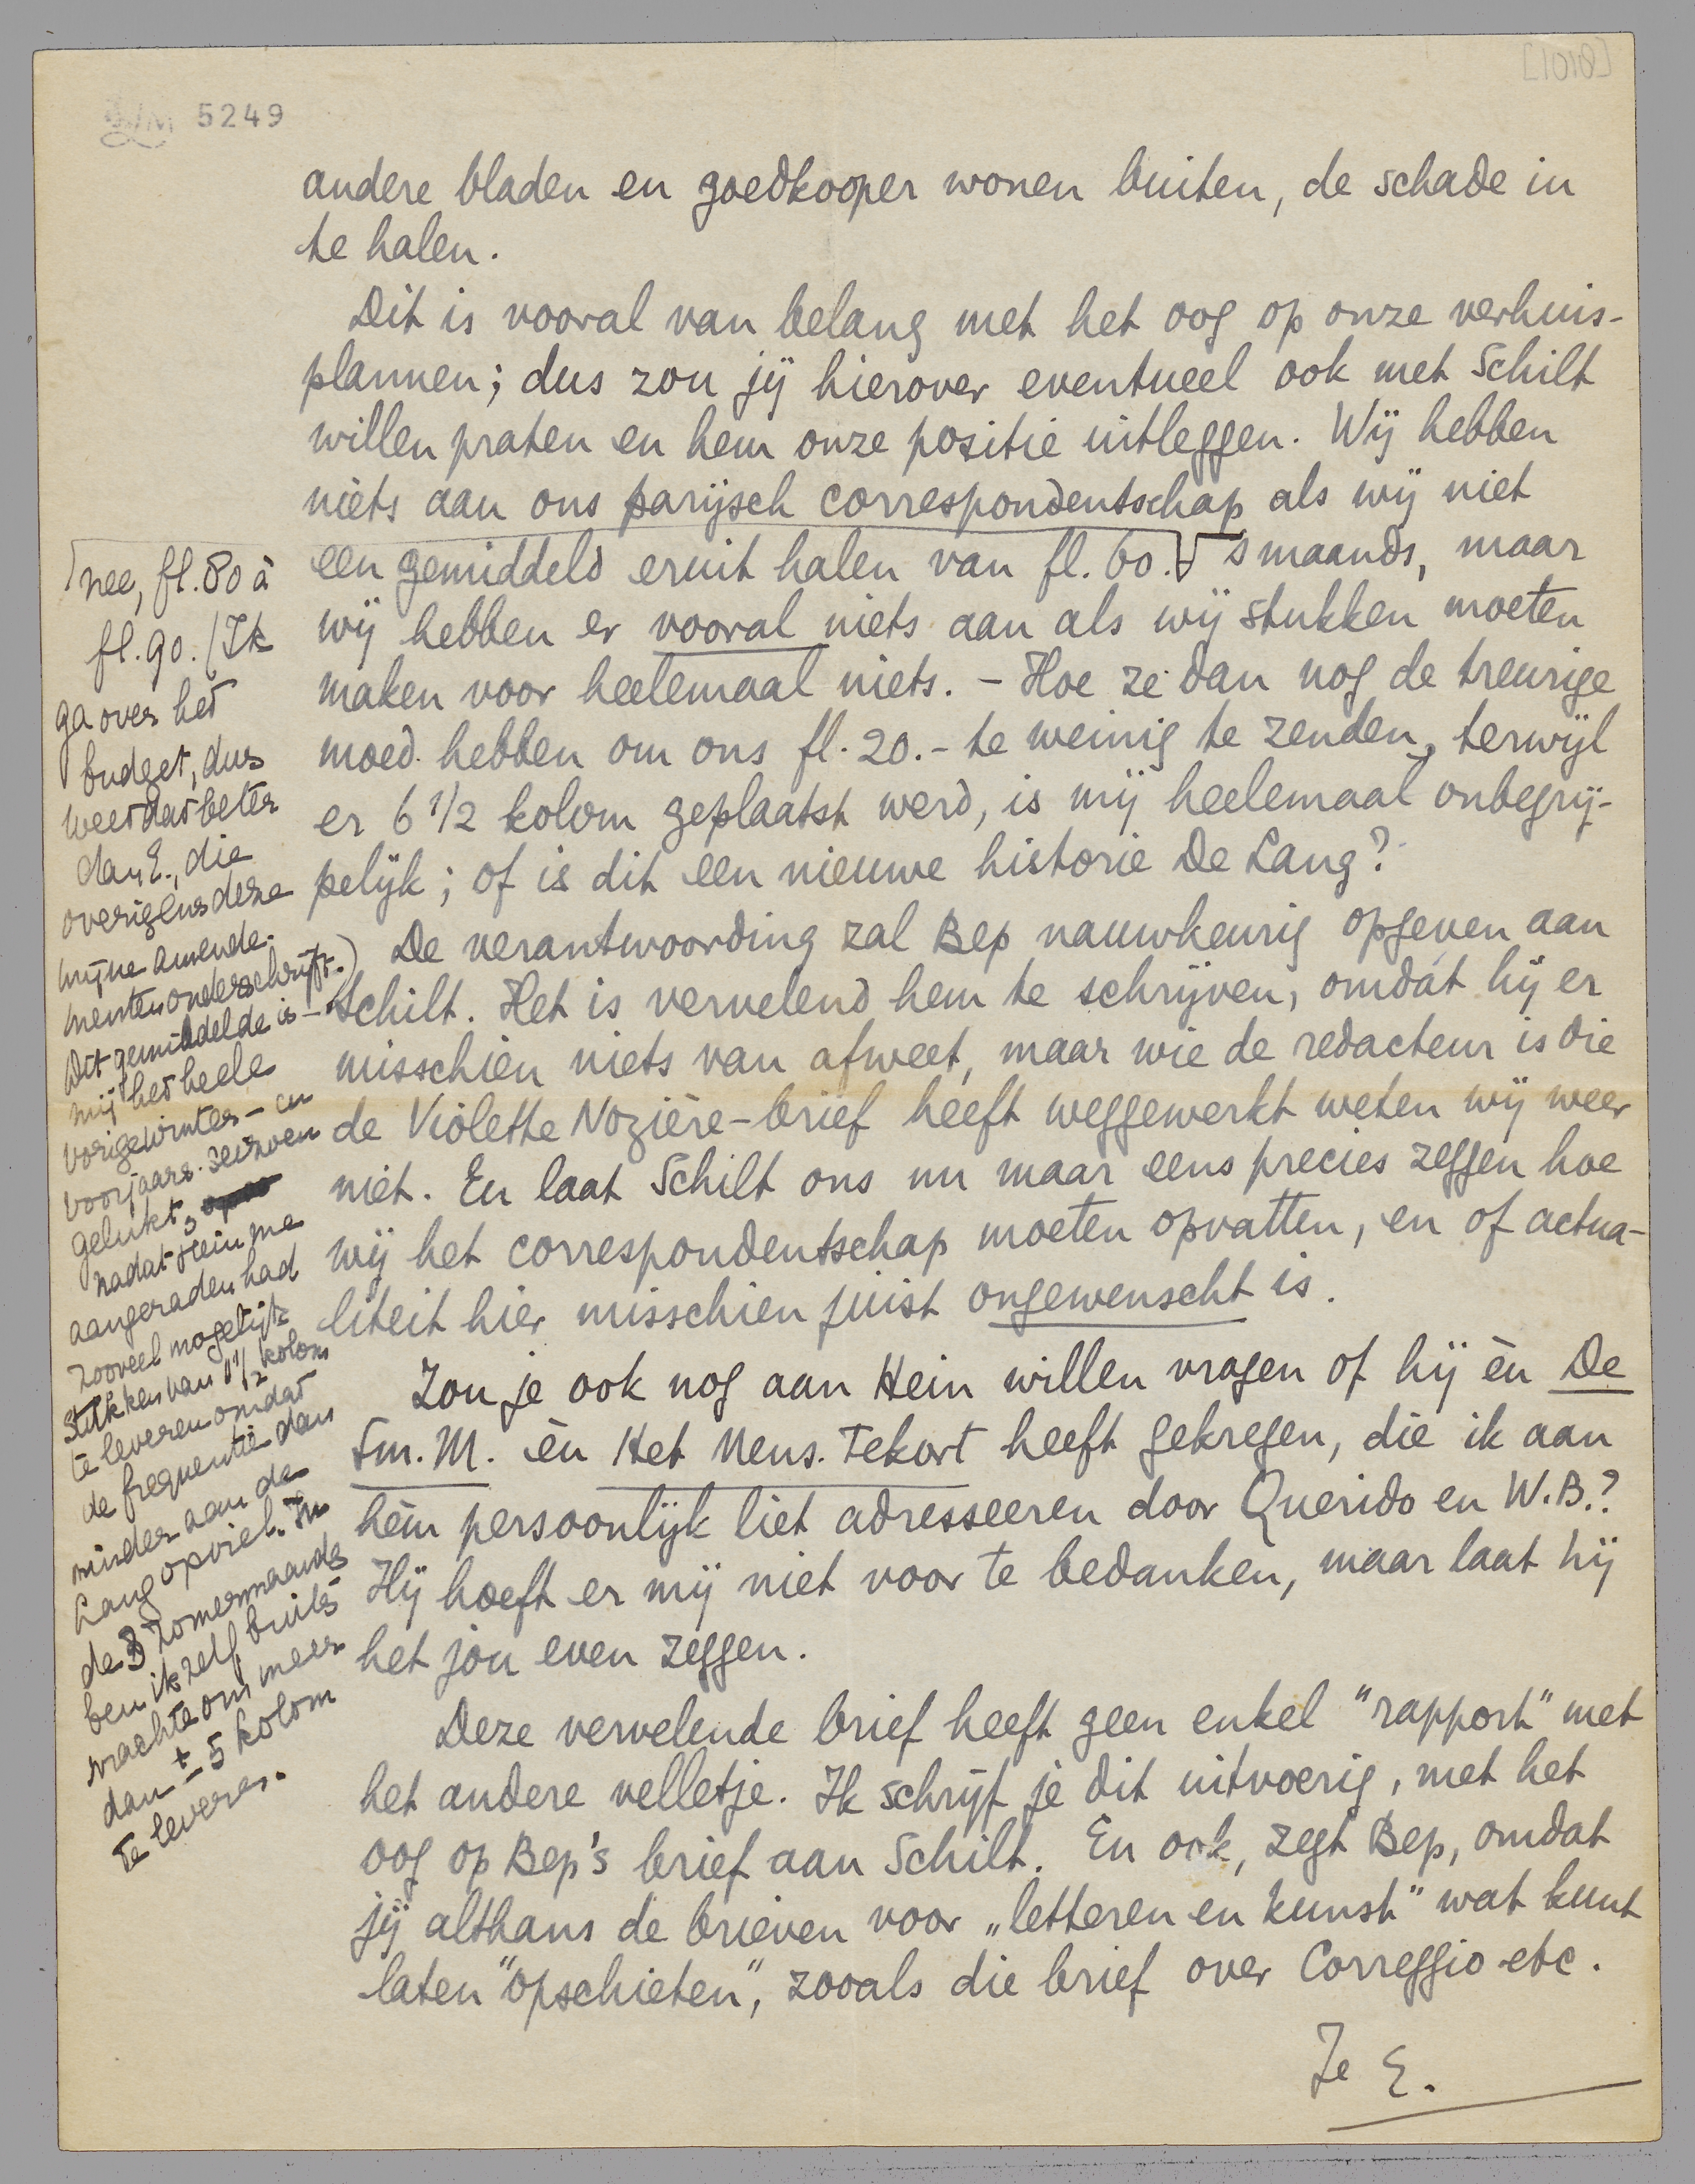 [1018]
LM 5249
andere bladen en goedkooper wonen buiten, de schade in
te halen.
Dit is vooral van belang met het oog op onze verhuis-
plannen; dus zou jij hierover eventueel ook met Schilt
willen praten en hem onze positie uitleggen. Wij hebben
niets aan ons parijsch correspondentschap als wij niet
een gemiddeld eruit halen van fl. 60.- 's maands, maar
wij hebben er vooral niets aan als wij stukken moeten
maken voor heelemaal niets. - Hoe ze dan nog de treurige
moed hebben om ons fl. 20.- te weinig te zenden, terwijl
er 6 1/2 kolom geplaatst werd, is mij heelemaal onbegrij-
pelijk; of is dit een nieuwe historie De Lang?
De verantwoording zal Bep nauwkeurig opgeven aan
Schilt. Het is vervelend hem te schrijven, omdát hij er
misschien niets van afweet, maar wie de redacteur is die
de Violette Nozière-brief heeft weggewerkt weten wij weer
niet. En laat Schilt ons nu maar eens precies zeggen hoe
wij het correspondentschap moeten opvatten, en of actua-
liteit hier misschien juist ongewenscht is.
Zou je ook nog aan Hein willen vragen of hij èn De
Sm. M. èn Het Mens. Tekort heeft gekregen, die ik aan
hèm persoonlijk liet adresseeren door Querido en W.B.?
Hij hoeft er mij niet voor te bedanken, maar laat hij
het jou even zeggen.
Deze vervelende brief heeft geen enkel "rapport" met
het andere velletje. Ik schrijf je dit uitvoerig, met het
oog op Bep's brief aan Schilt. En ook, zegt Bep, omdat
jij althans de brieven voor „letteren en kunst" wat kunt
laten "opschieten", zooals die brief over Correggio etc.
Je E.
nee, fl. 80 à
fl. 90. (Ik
ga over het
budget, dus
weet dat beter
dan E., die
overigens deze
mijne amende-
menten onderschrijft.)
Dit gemiddelde is
mij het heele
vorige winter- en
voorjaars-seizoen
gelukt,
nadat Hein me
aangeraden had
zooveel mogelijk
stukken van 1 1/2 kolom
te leveren omdat
de frequentie dan
minder aan de
Lang opviel. In
de 3 zomermaands
ben ik zelf buiten
machte om meer
dan ± 5 kolom
te leveren.